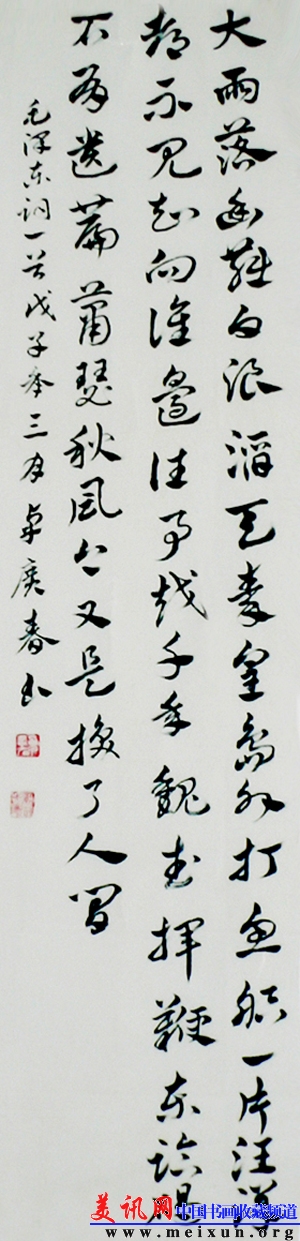 大雨落幽燕白浪滔天秦皇島外打魚船一片汪洋
都不見知向誰邊往事越千年魏武揮鞭東臨碣
石有遺篇蕭瑟秋風今又是換了人間
毛澤東詞一首戊子年三月卓庚春书
美讯网 中国书画收藏频道
www.meixun.org